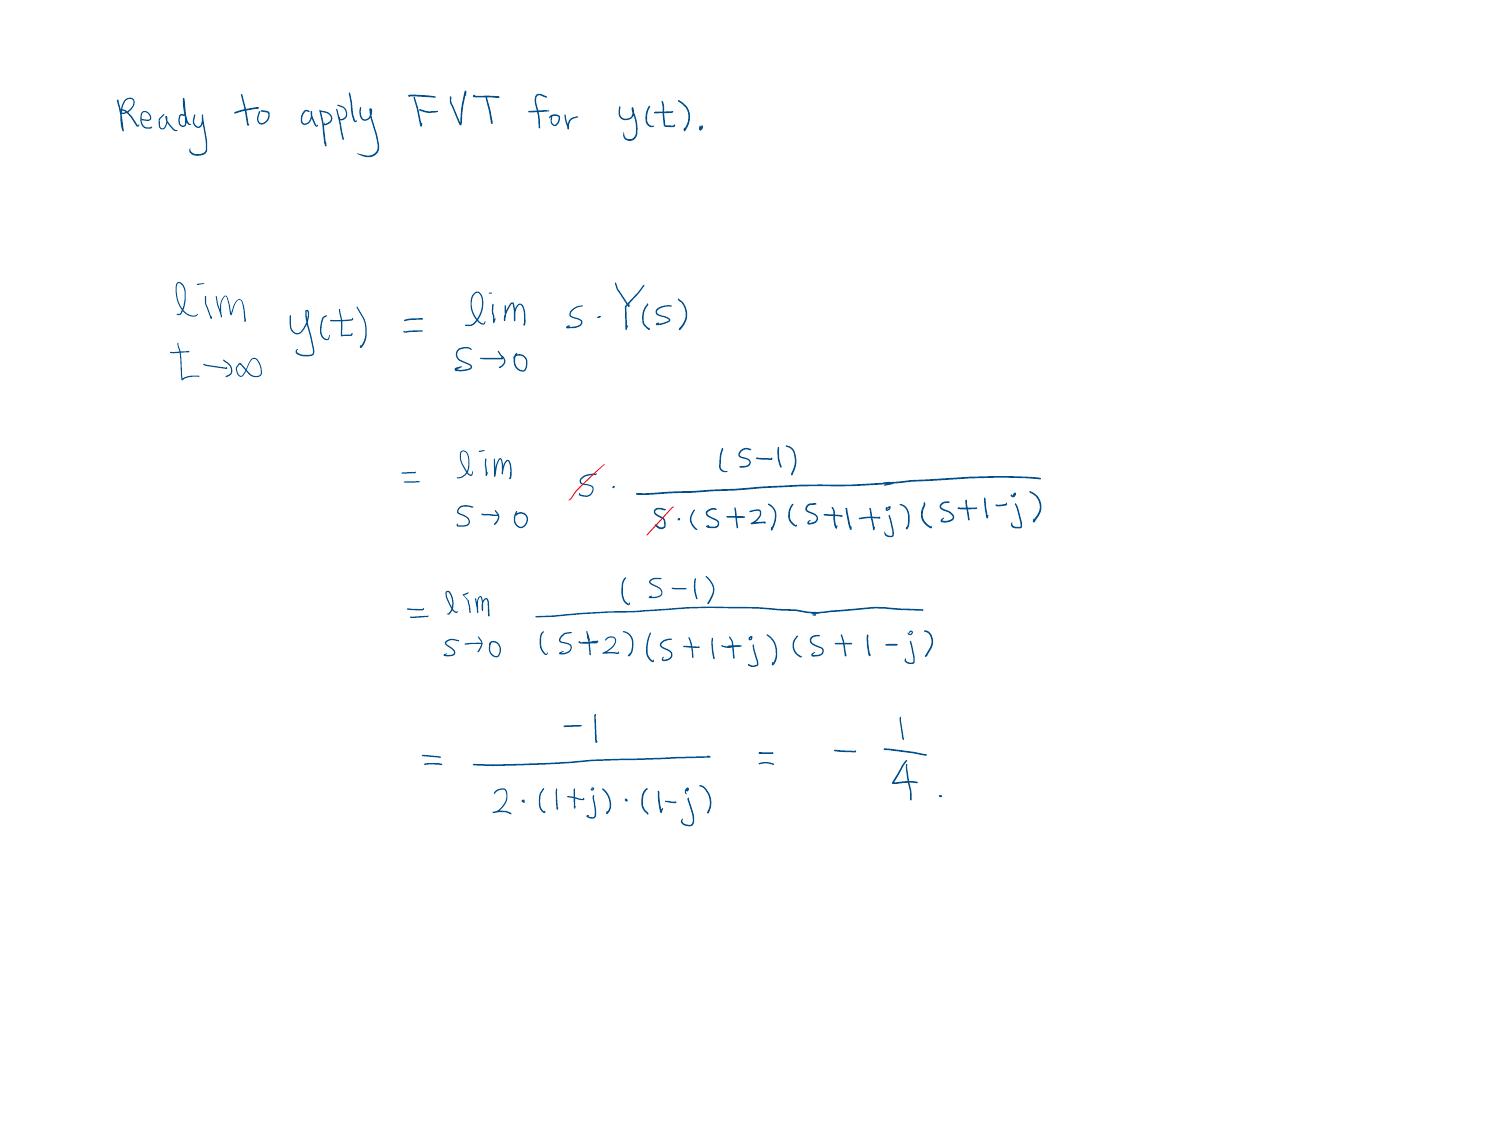 Ready to apply FVT for y(t).
lim t→∞ y(t) = lim s→0 s · Y(s)
= lim s→0 s · (s-1) / s·(s+2)(s+1+j)(s+1-j)
= lim s→0 (s-1) / (s+2)(s+1+j)(s+1-j)
= -1 / 2·(1+j)·(1-j) = - 1/4.